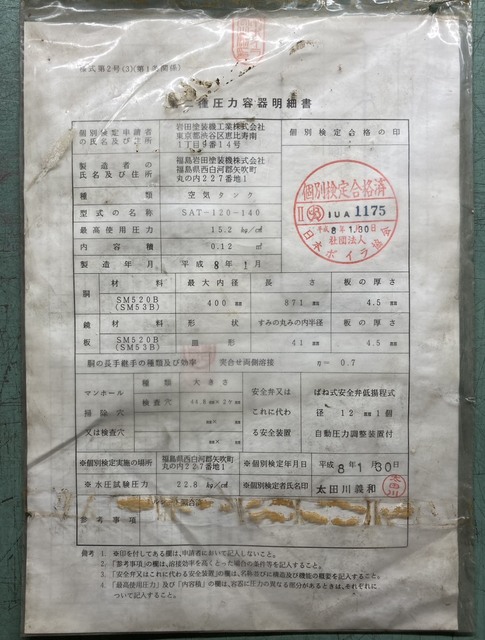 様式第2号(3)(第1条関係)
二種圧力容器明細書
個別検定申請者の氏名及び住所
岩田塗装機工業株式会社
東京都渋谷区恵比寿南
1丁目9番14号
個別検定合格の印
製造者の氏名及び住所
福島岩田塗装機株式会社
福島県西白河郡矢吹町
丸の内227番地1
種類 空気タンク
型式の名称 SAT-120-140
最高使用圧力 15.2 kg/c㎡
内容積 0.12 ㎥
製造年月 平成8年1月
個別検定合格済
II IUA 1175
平成 8年 1月30日
社団法人
日本ボイラ協会
胴 材料 最大内径 長さ 板の厚さ
SM520B (SM53B) 400 mm 871 mm 4.5 mm
鏡板 材料 形状 すみの丸みの内半径 板の厚さ
SM520B (SM53B) 皿形 41 mm 4.5 mm
胴の長手継手の種類及び効率 突合せ両側溶接 η= 0.7
マンホール
掃除穴
又は検査穴
種類 大きさ
検査穴
mm×
mm×
安全弁又は
これに代わ
る安全装置
ばね式安全弁低揚程式
径 12 mm 1個
自動圧力調整装置付
※個別検定実施の場所
福島県西白河郡矢吹町
丸の内227番地1
※個別検定年月日
平成8年1月30日
※水圧試験圧力 22.8 kg/c㎡
※個別検定者氏名印 太田川義和
太田川
参考事項
備考 1 ※印を付してある欄は、申請者において記入しないこと。
2.「参考事項」の欄は、溶接効率を高くとった場合の条件等を記入すること。
3.「安全弁又はこれに代わる安全装置」の欄は、名称並びに構造及び機能の概要を記入すること。
4.「最高使用圧力」及び「内容積」の欄は、容器に圧力の異なる部分があるときは、それぞれに
ついて記入すること。